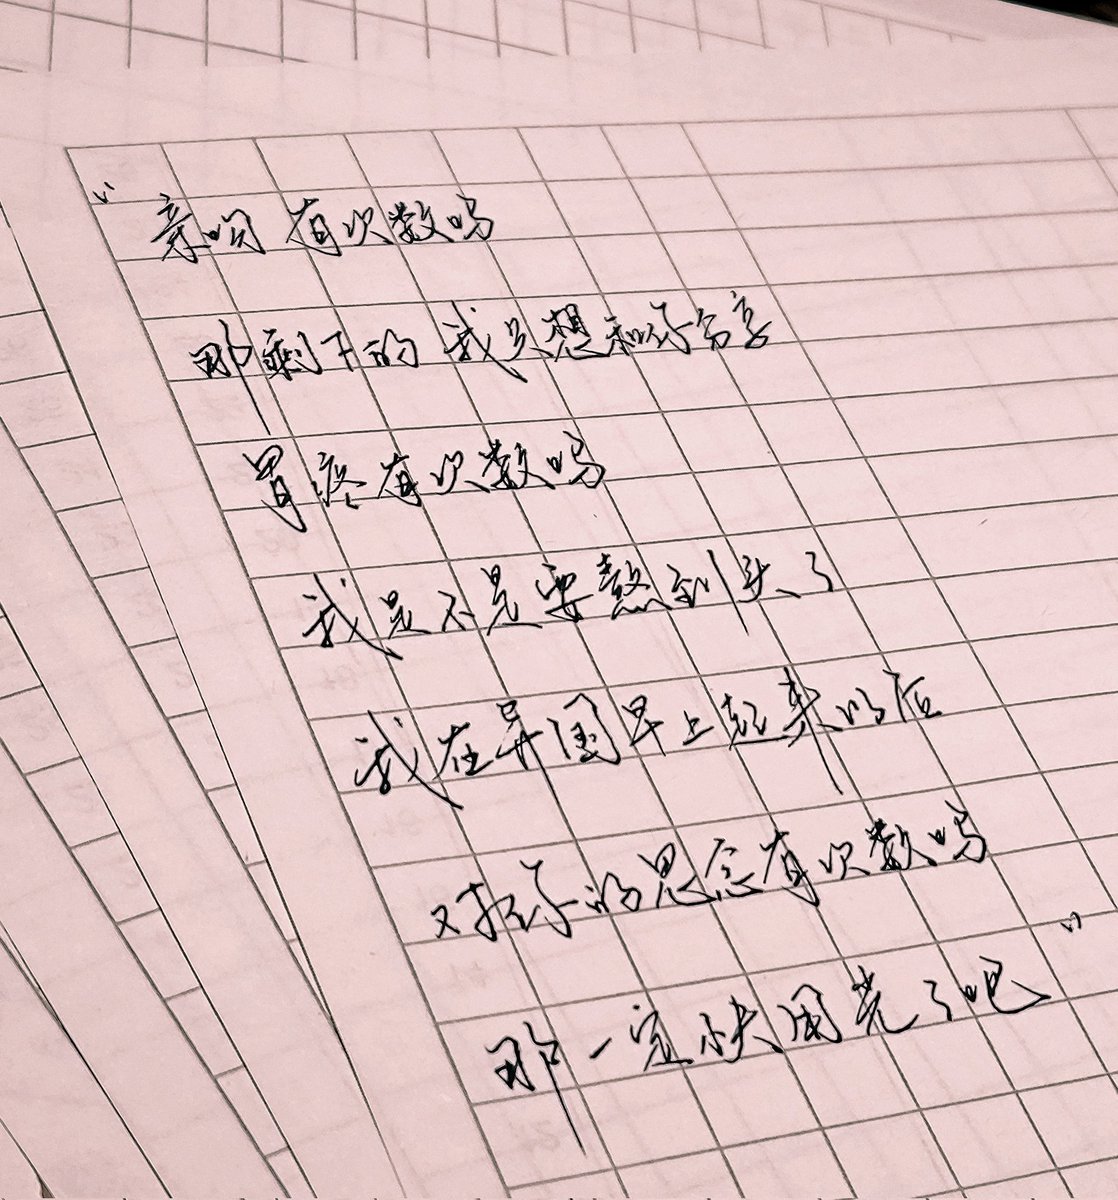 “亲吻有次数吗
那剩下的我只想和你分享
胃疼有次数吗
我是不是要熬到头了
我在异国早上起来以后
对你的思念有次数吗
那一定快用光了吧”